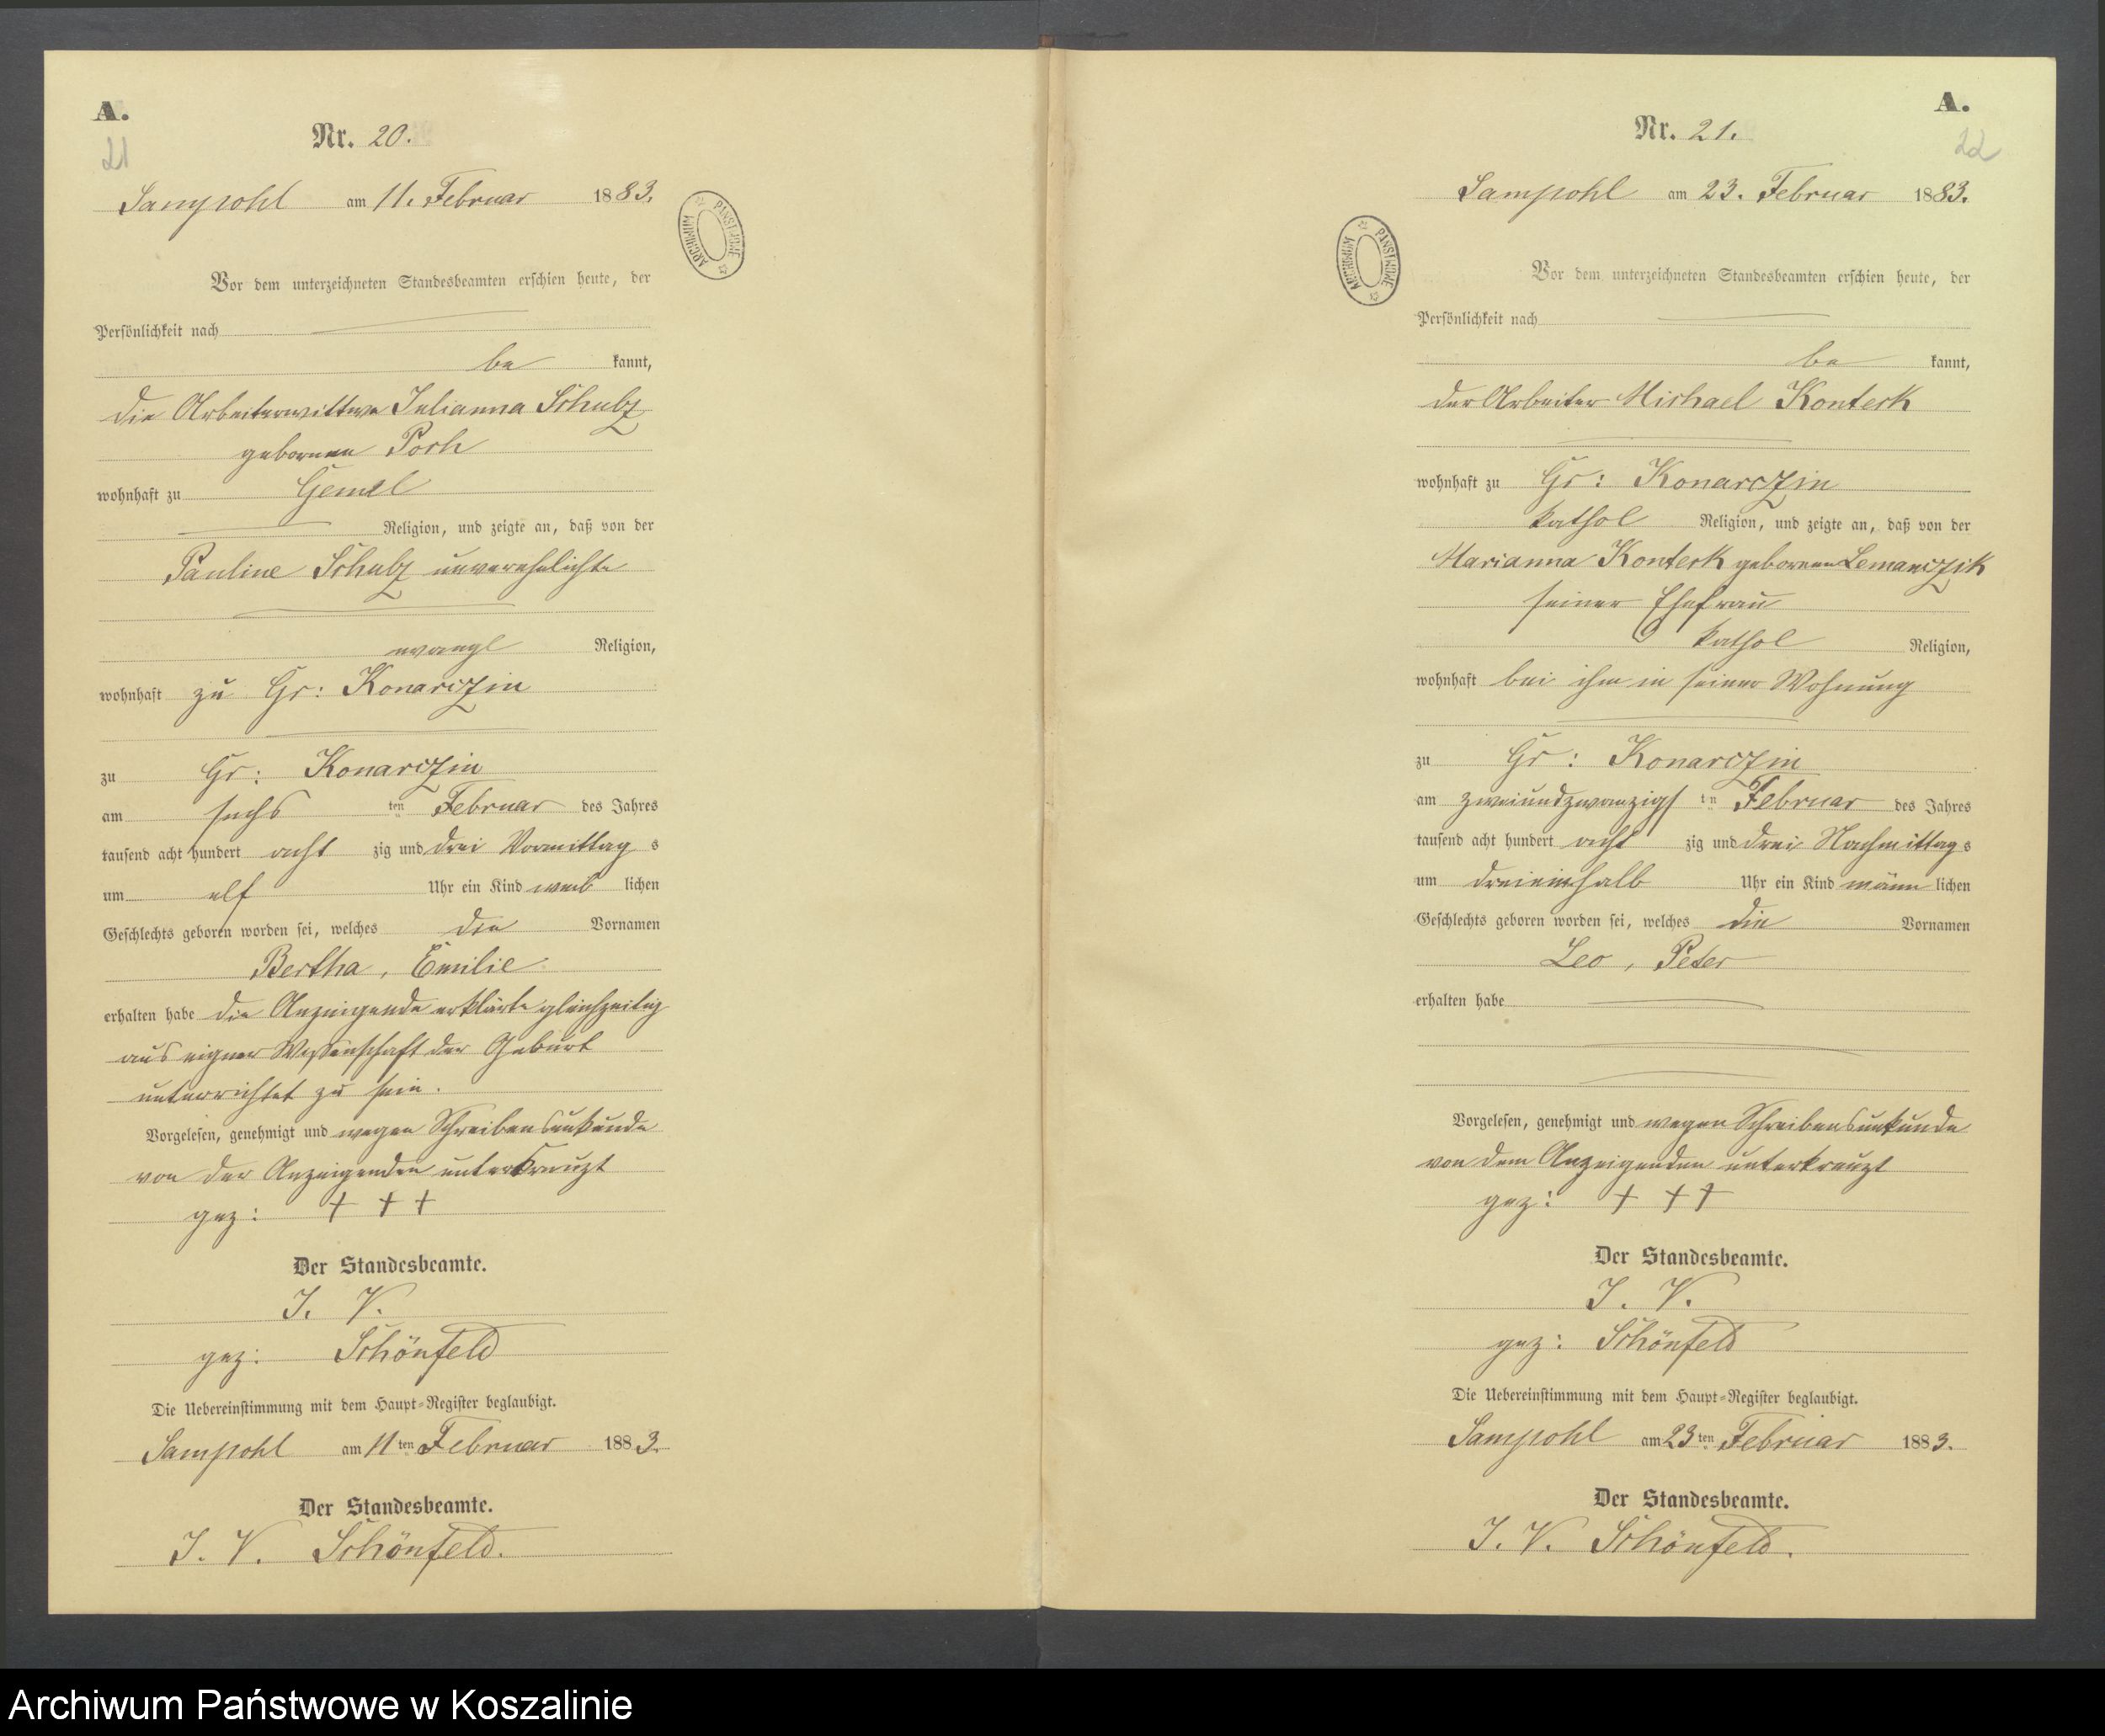 A.
21
Nr. 20.
Sampohl am 11. Februar 1883.
ARCHIWUM PAŃSTWOWE
Vor dem unterzeichneten Standesbeamten erschien heute, der
Persönlichkeit nach
be kannt,
die Arbeiterwittwe Julianna Schulz
geborenen
wohnhaft zu Gemel
Religion, und zeigte an, daß von der
Pauline Schulz unverehelichte
evangl Religion,
wohnhaft zu Gr: Konarczin
zu Gr: Konarczin
am sechs ten Februar des Jahres
tausend acht hundert acht zig und drei Vormittag s
um elf Uhr ein Kind weib lichen
Geschlechts geboren worden sei, welches die Vornamen
Bertha, Emilie
erhalten habe die Anzeigende erklärte gleichzeitig
aus eigner Wissenschaft der Geburt
unterrichtet zu sein.
Vorgelesen, genehmigt und wegen Schreibensunkunde
von der Anzeigenden unterkreuzt
gez: + + +
Der Standesbeamte.
J. V.
gez: Schönfeld
Die Uebereinstimmung mit dem Haupt-Register beglaubigt.
Sampohl am 11ten Februar 1883.
Der Standesbeamte.
J. V. Schönfeld.
A.
22
Nr. 21.
Sampohl am 23. Februar 1883.
ARCHIWUM PAŃSTWOWE
Vor dem unterzeichneten Standesbeamten erschien heute, der
Persönlichkeit nach
be kannt,
der Arbeiter Michael Konterk
wohnhaft zu Gr: Konarczin
kathol Religion, und zeigte an, daß von der
Marianna Konterk geborenen Lemanczik
seiner Ehefrau
kathol Religion,
wohnhaft bei ihm in seiner Wohnung
zu Gr: Konarczin
am zweiundzwanzigs ten Februar des Jahres
tausend acht hundert acht zig und drei Nachmittag s
um dreieinhalb Uhr ein Kind männ lichen
Geschlechts geboren worden sei, welches die Vornamen
Leo, Peter
erhalten habe
Vorgelesen, genehmigt und wegen Schreibensunkunde
von dem Anzeigenden unterkreuzt
gez: + + +
Der Standesbeamte.
J. V.
gez: Schönfeld
Die Uebereinstimmung mit dem Haupt-Register beglaubigt.
Sampohl am 23ten Februar 1883.
Der Standesbeamte.
J. V. Schönfeld.
Archiwum Państwowe w Koszalinie